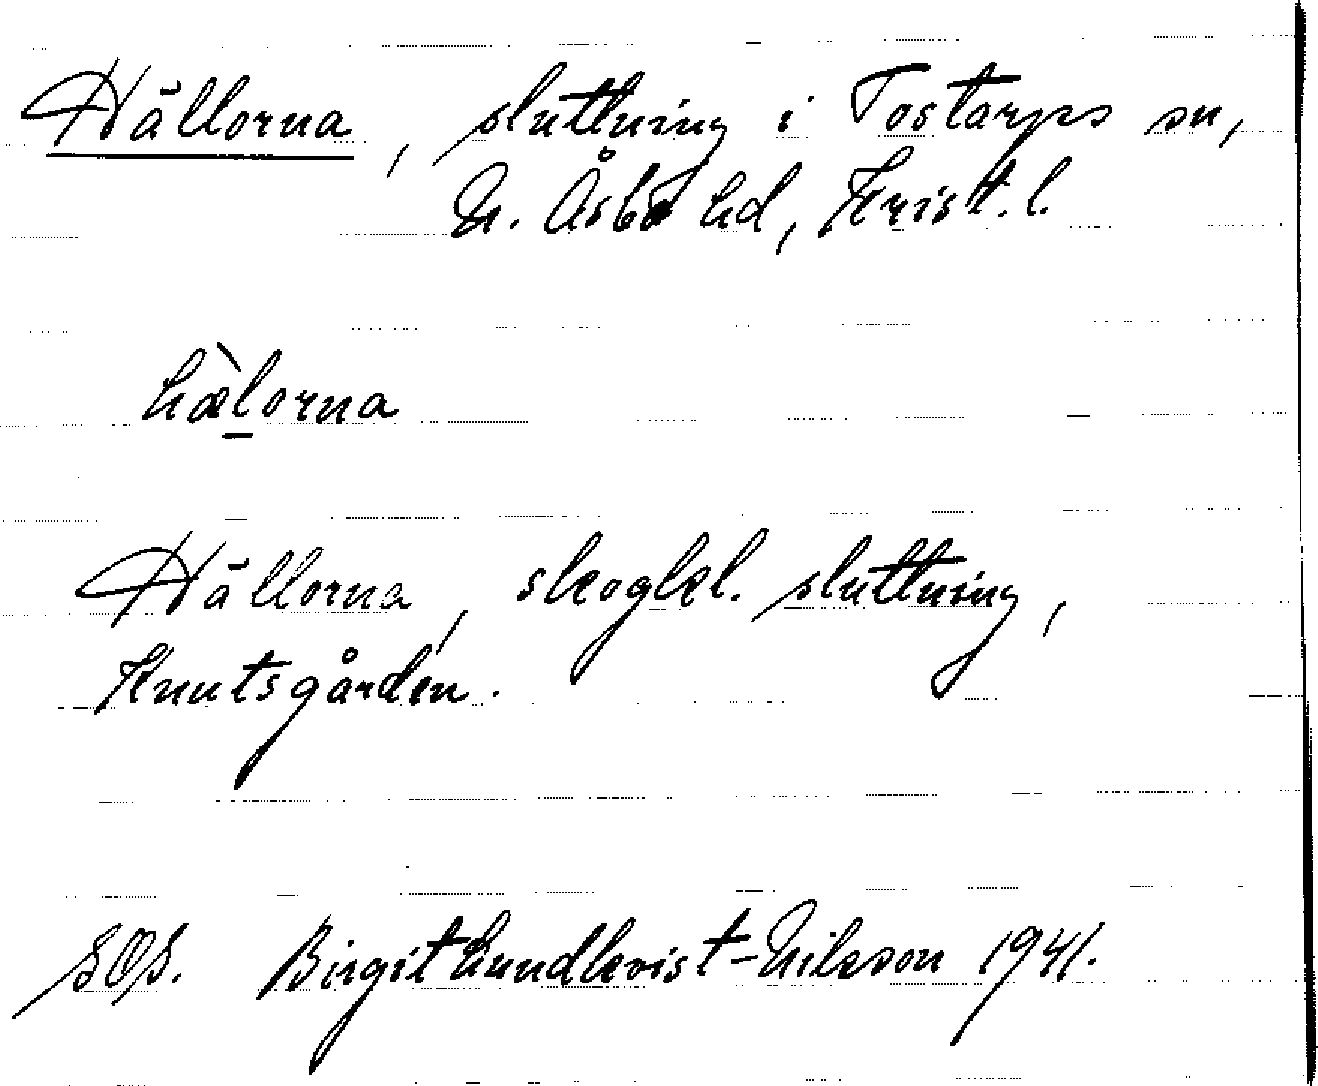 Hällorna, sluttning i Tostarps sn,
N. Åsbo hd, Krist. l.
hæ̀l̲orna
Hällorna, skogkl. sluttning,
Knutsgården.
SOS. Birgit Lundkvist-Nilsson 1941.